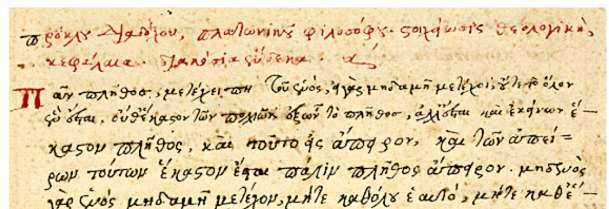 πρόκλου διαδόχου, πλατωνικοῦ φιλοσόφου στοιχείωσις θεολογική,
κεφάλαια διακόσια ἕνδεκα. α
Πᾶν πλῆθος, μετέχει πη τοῦ ἑνός, εἰ γὰρ μηδαμῆ μετέχοι, οὔτε τὸ ὅλον
ἓν ἔσται, οὔθ' ἕκαστον τῶν πολλῶν ἐξ ὧν τὸ πλῆθος, ἀλλ' ἔσται καὶ ἐκείνων ἕ-
καστον πλῆθος, καὶ τοῦτο εἰς ἄπειρον, καὶ τῶν ἀπεί=
ρων τούτων ἕκαστον ἔσται πάλιν πλῆθος ἄπειρον. μηδενὸς
γὰρ ἑνὸς μηδαμῆ μετέχον, μήτε καθ' ὅλου ἑαυτό, μήτε καθ' ἕ-